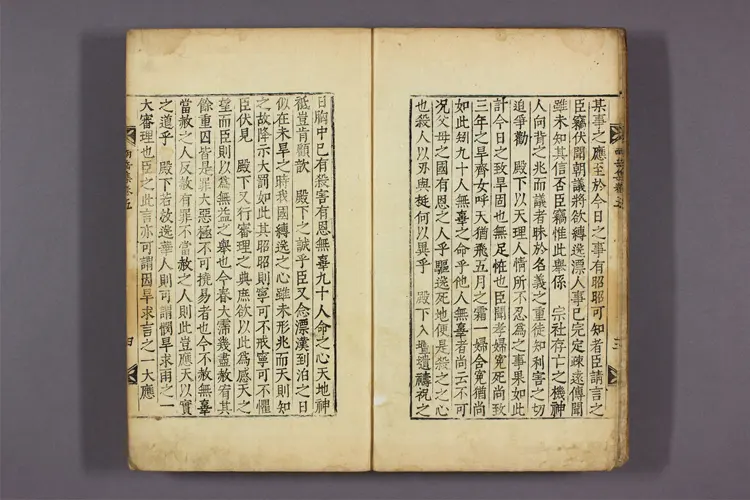 某事之應至於今日之事有昭昭可知者臣請言之
臣竊伏聞朝議將欲縛逸漂人事已完定疎遠傳聞
雖未知其信否臣竊惟此舉係 宗社存亡之機神
人向背之兆而議者昧於名義之重徒知利害之切
追爭勸 殿下以天理人情所不忍爲之事果如此
計今日之致旱固也無足恠也臣聞孝婦寃死尚致
三年之旱齊女呼天猶飛五月之霜一婦含寃猶尚
如此矧九十人無辜之命乎他人無辜者尚云不可
况父母之國有恩之人乎驅逸死地便是殺之之心
也殺人以刃與梃何以異乎 殿下入壇遣禱祝之
日胸中已有殺害有恩無辜九十人命之心天地神
祗豈肯顧歆 殿下之誠乎臣又念漂漢到泊之日
似在未旱之時我國縛逸之心雖未形兆而天則知
之故降示大罰如此其昭昭則寧可不戒寧可不懼
臣伏見 殿下又行審理之典庶欲以此爲感天之
望而臣則以爲無益之舉也今春大霈幾盡赦宥其
餘重囚皆是罪大惡極不可撓易者也今不赦無辜
當赦之人反赦有罪不當赦之人則此豈應天以實
之道乎 殿下若放逸華人則可謂憫旱求雨之一
大審理也臣之此言亦可謂因旱求言之一大應
卷五
四
三